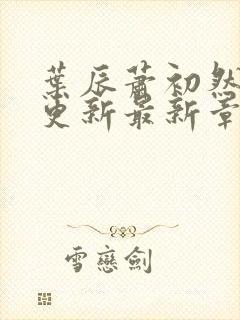 葉辰蕭初然
更新最新章
雪戀劍